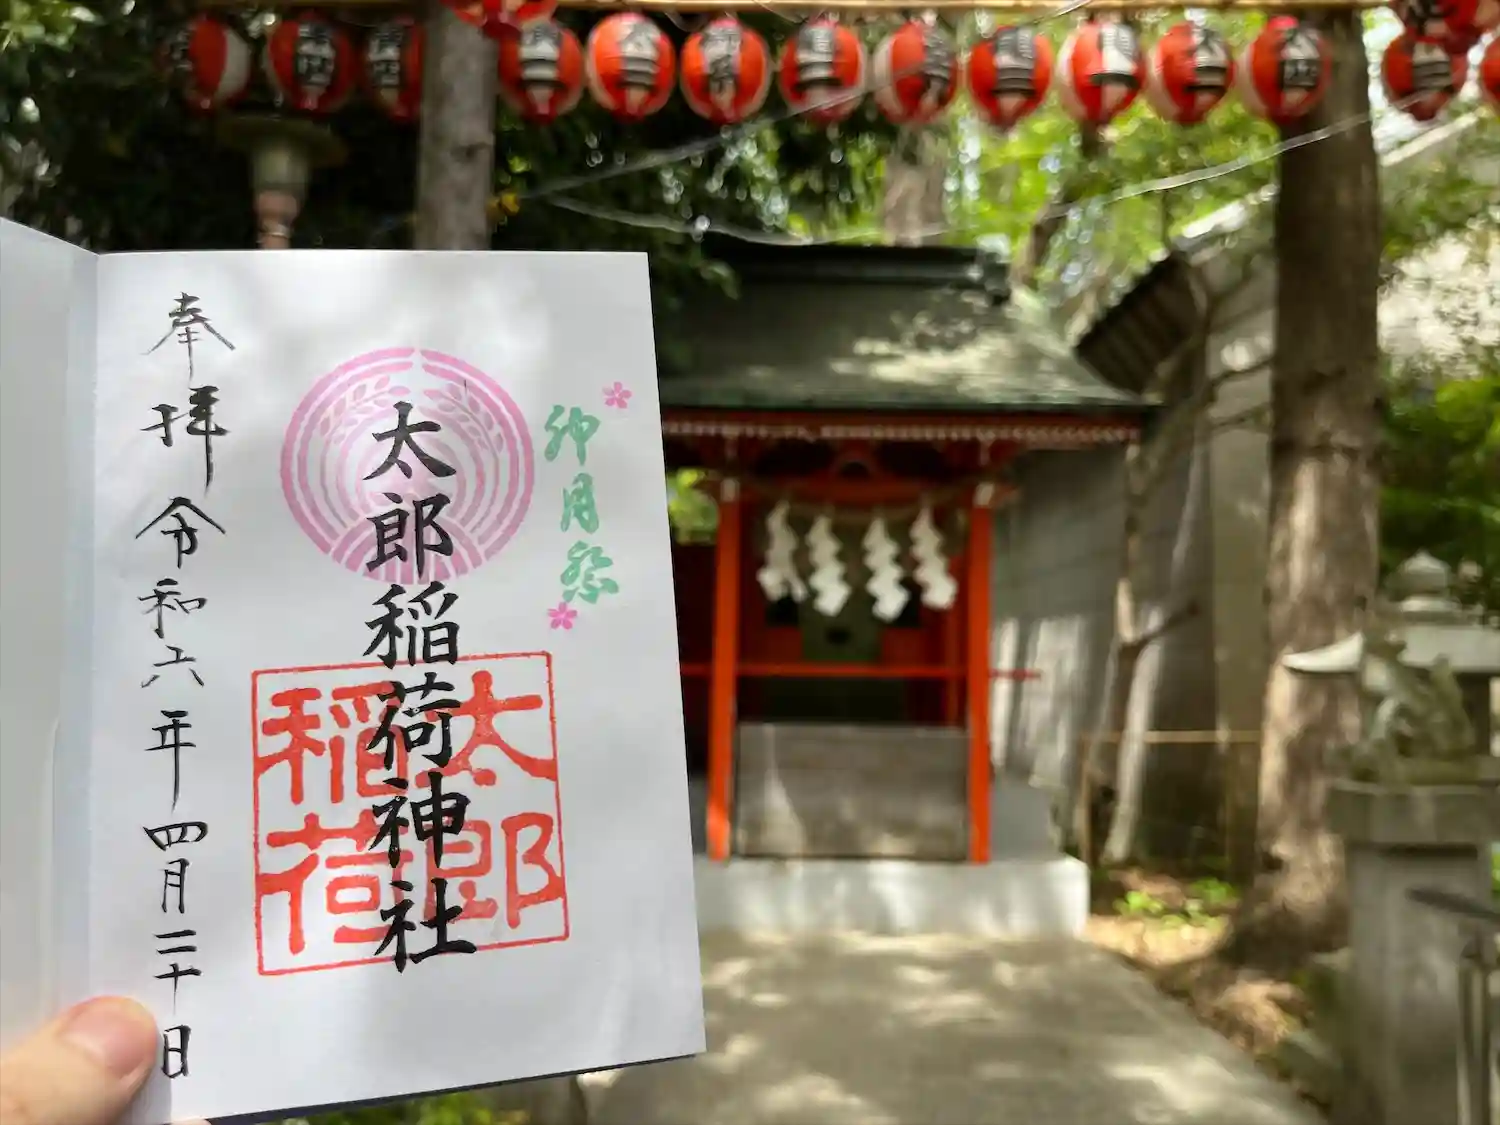 卯月祭
太郎稲荷神社
太郎
稲荷
奉拝 令和六年四月二十日